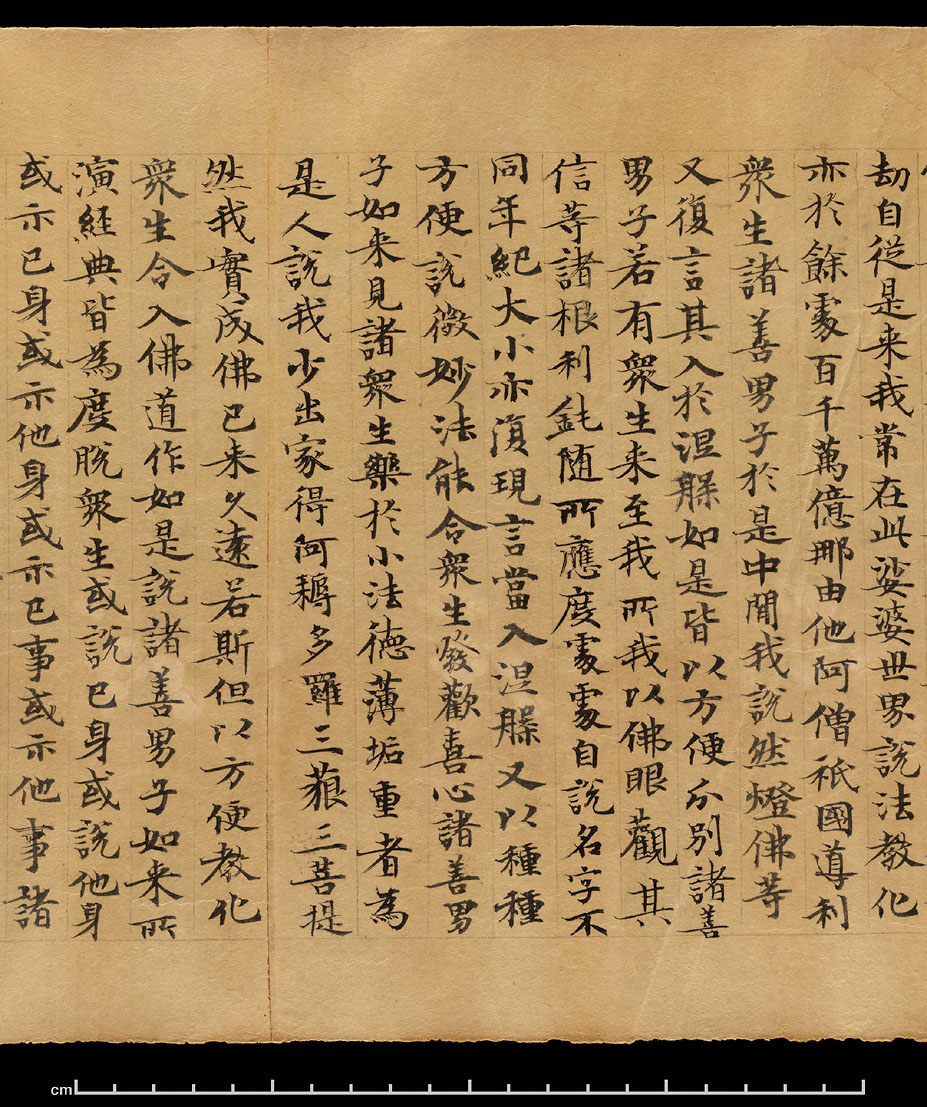 劫自從是来我常在此娑婆世界說法教化
亦於餘處百千萬億那由他阿僧祇國導利
衆生諸善男子於是中間我說然燈佛等
又復言其入於涅槃如是皆以方便分別諸善
男子若有衆生来至我所我以佛眼觀其
信等諸根利鈍随所應度處處自說名字不
同年紀大小亦復現言當入涅槃又以種種
方便說微妙法能令衆生發歡喜心諸善男
子如来見諸衆生樂於小法德薄垢重者為
是人說我少出家得阿耨多羅三藐三菩提
然我實成佛已来久遠若斯但以方便教化
衆生令入佛道作如是說諸善男子如来所
演経典皆為度脫衆生或說己身或說他身
或示己身或示他身或示己事或示他事諸